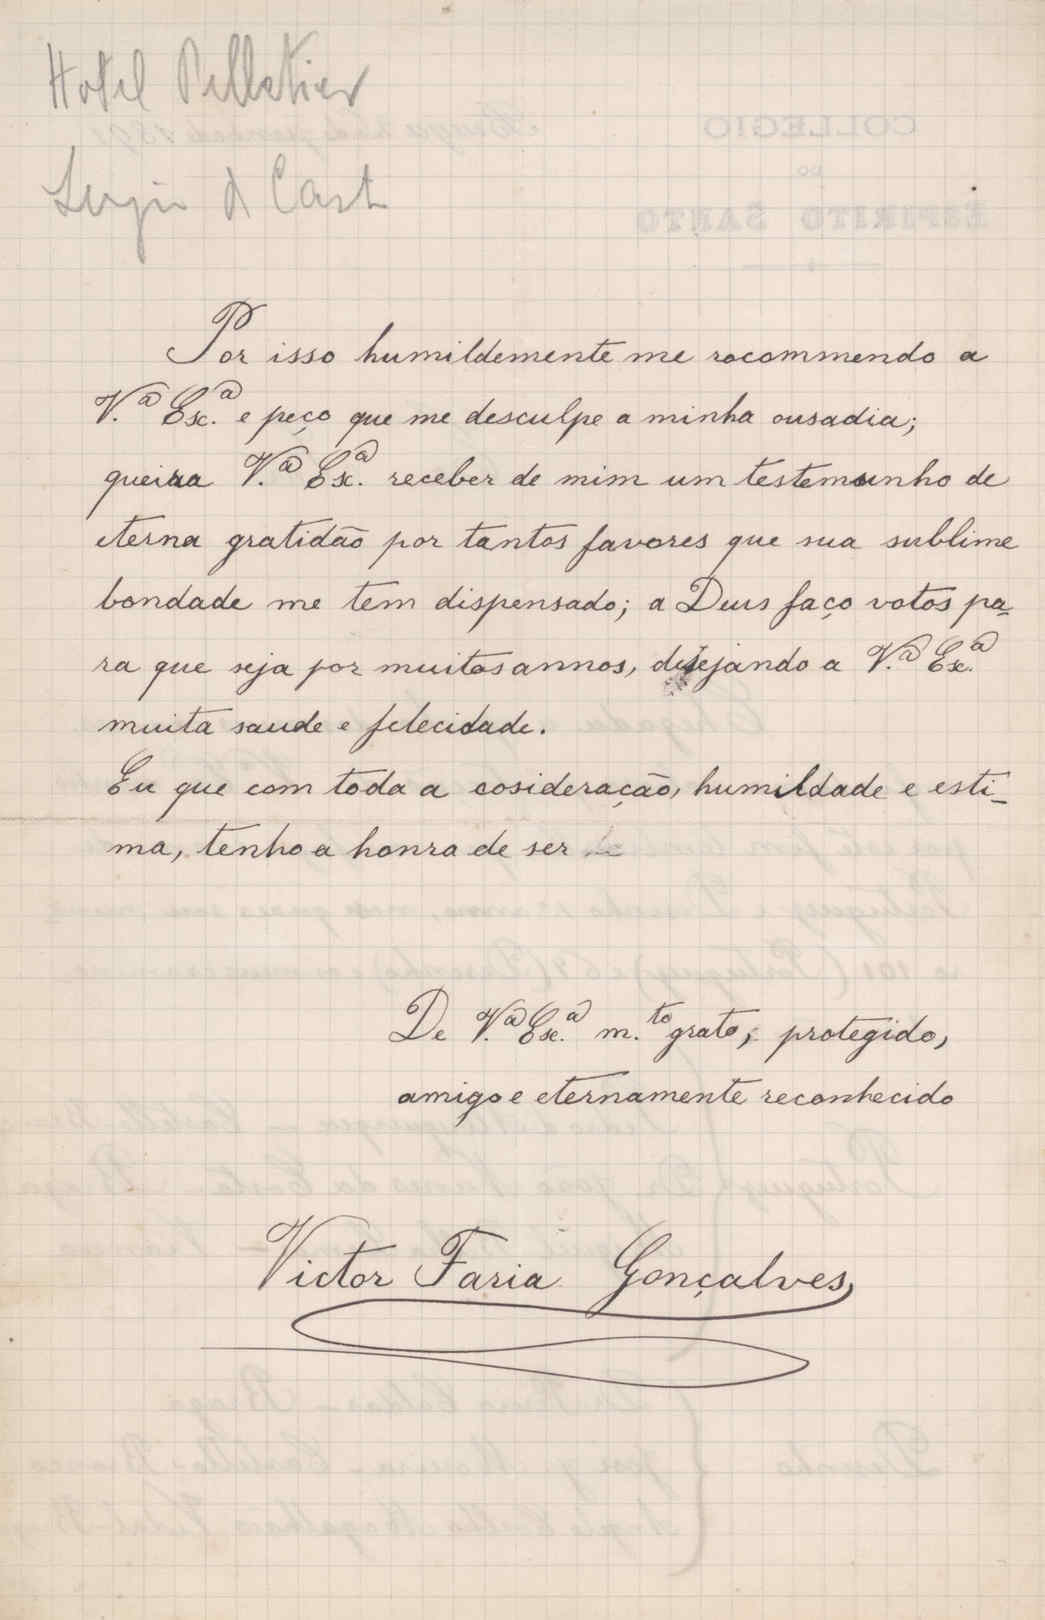 Hotel Pelletier
Por isso humildemente me recommendo a
V.ª Ex.ª e peço que me desculpe a minha ousadia;
queira V.ª Ex.ª receber de mim um testemunho de
eterna gratidão por tantos favores que sua sublime
bondade me tem dispensado; a Deus faço votos pa-
ra que seja por muitos annos, desejando a V.ª Ex.ª
muita saude e felecidade.
Eu que com toda a cosideração, humildade e esti-
ma, tenho a honra de ser
De V.ª Ex.ª m.to grato, protegido,
amigo e eternamente reconhecido
Victor Faria Gonçalves